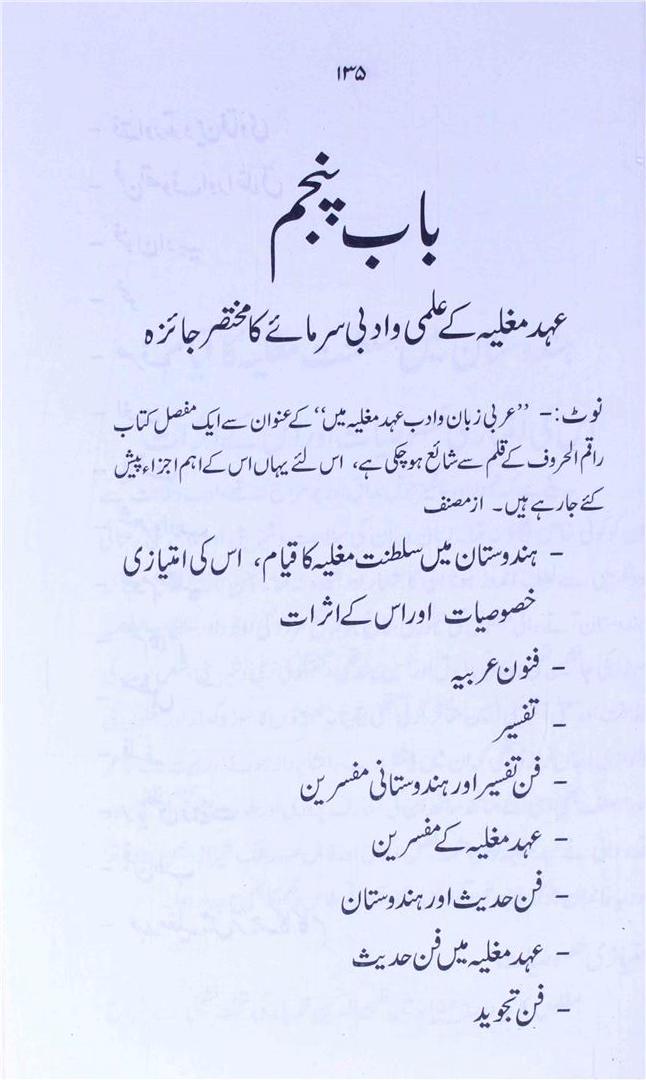 ۱۳۵
باب پنجم
عہد مغلیہ کے علمی و ادبی سرمائے کا مختصر جائزہ
نوٹ:- ’’عربی زبان و ادب عہد مغلیہ میں‘‘ کے عنوان سے ایک مفصل کتاب
راقم الحروف کے قلم سے شائع ہو چکی ہے، اس لئے یہاں اس کے اہم اجزاء پیش
کئے جا رہے ہیں۔ از مصنف
- ہندوستان میں سلطنت مغلیہ کا قیام، اس کی امتیازی
خصوصیات اور اس کے اثرات
- فنون عربیہ
- تفسیر
- فن تفسیر اور ہندوستانی مفسرین
- عہد مغلیہ کے مفسرین
- فن حدیث اور ہندوستان
- عہد مغلیہ میں فن حدیث
- فن تجوید